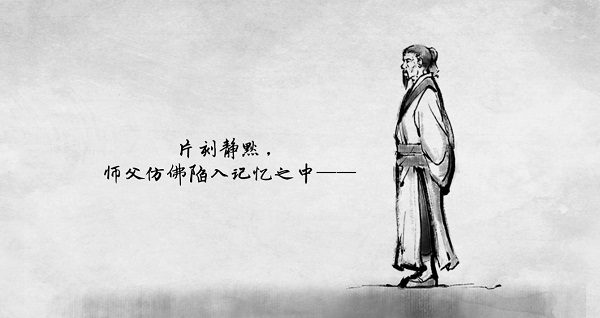 片刻静默，
师父仿佛陷入记忆之中——